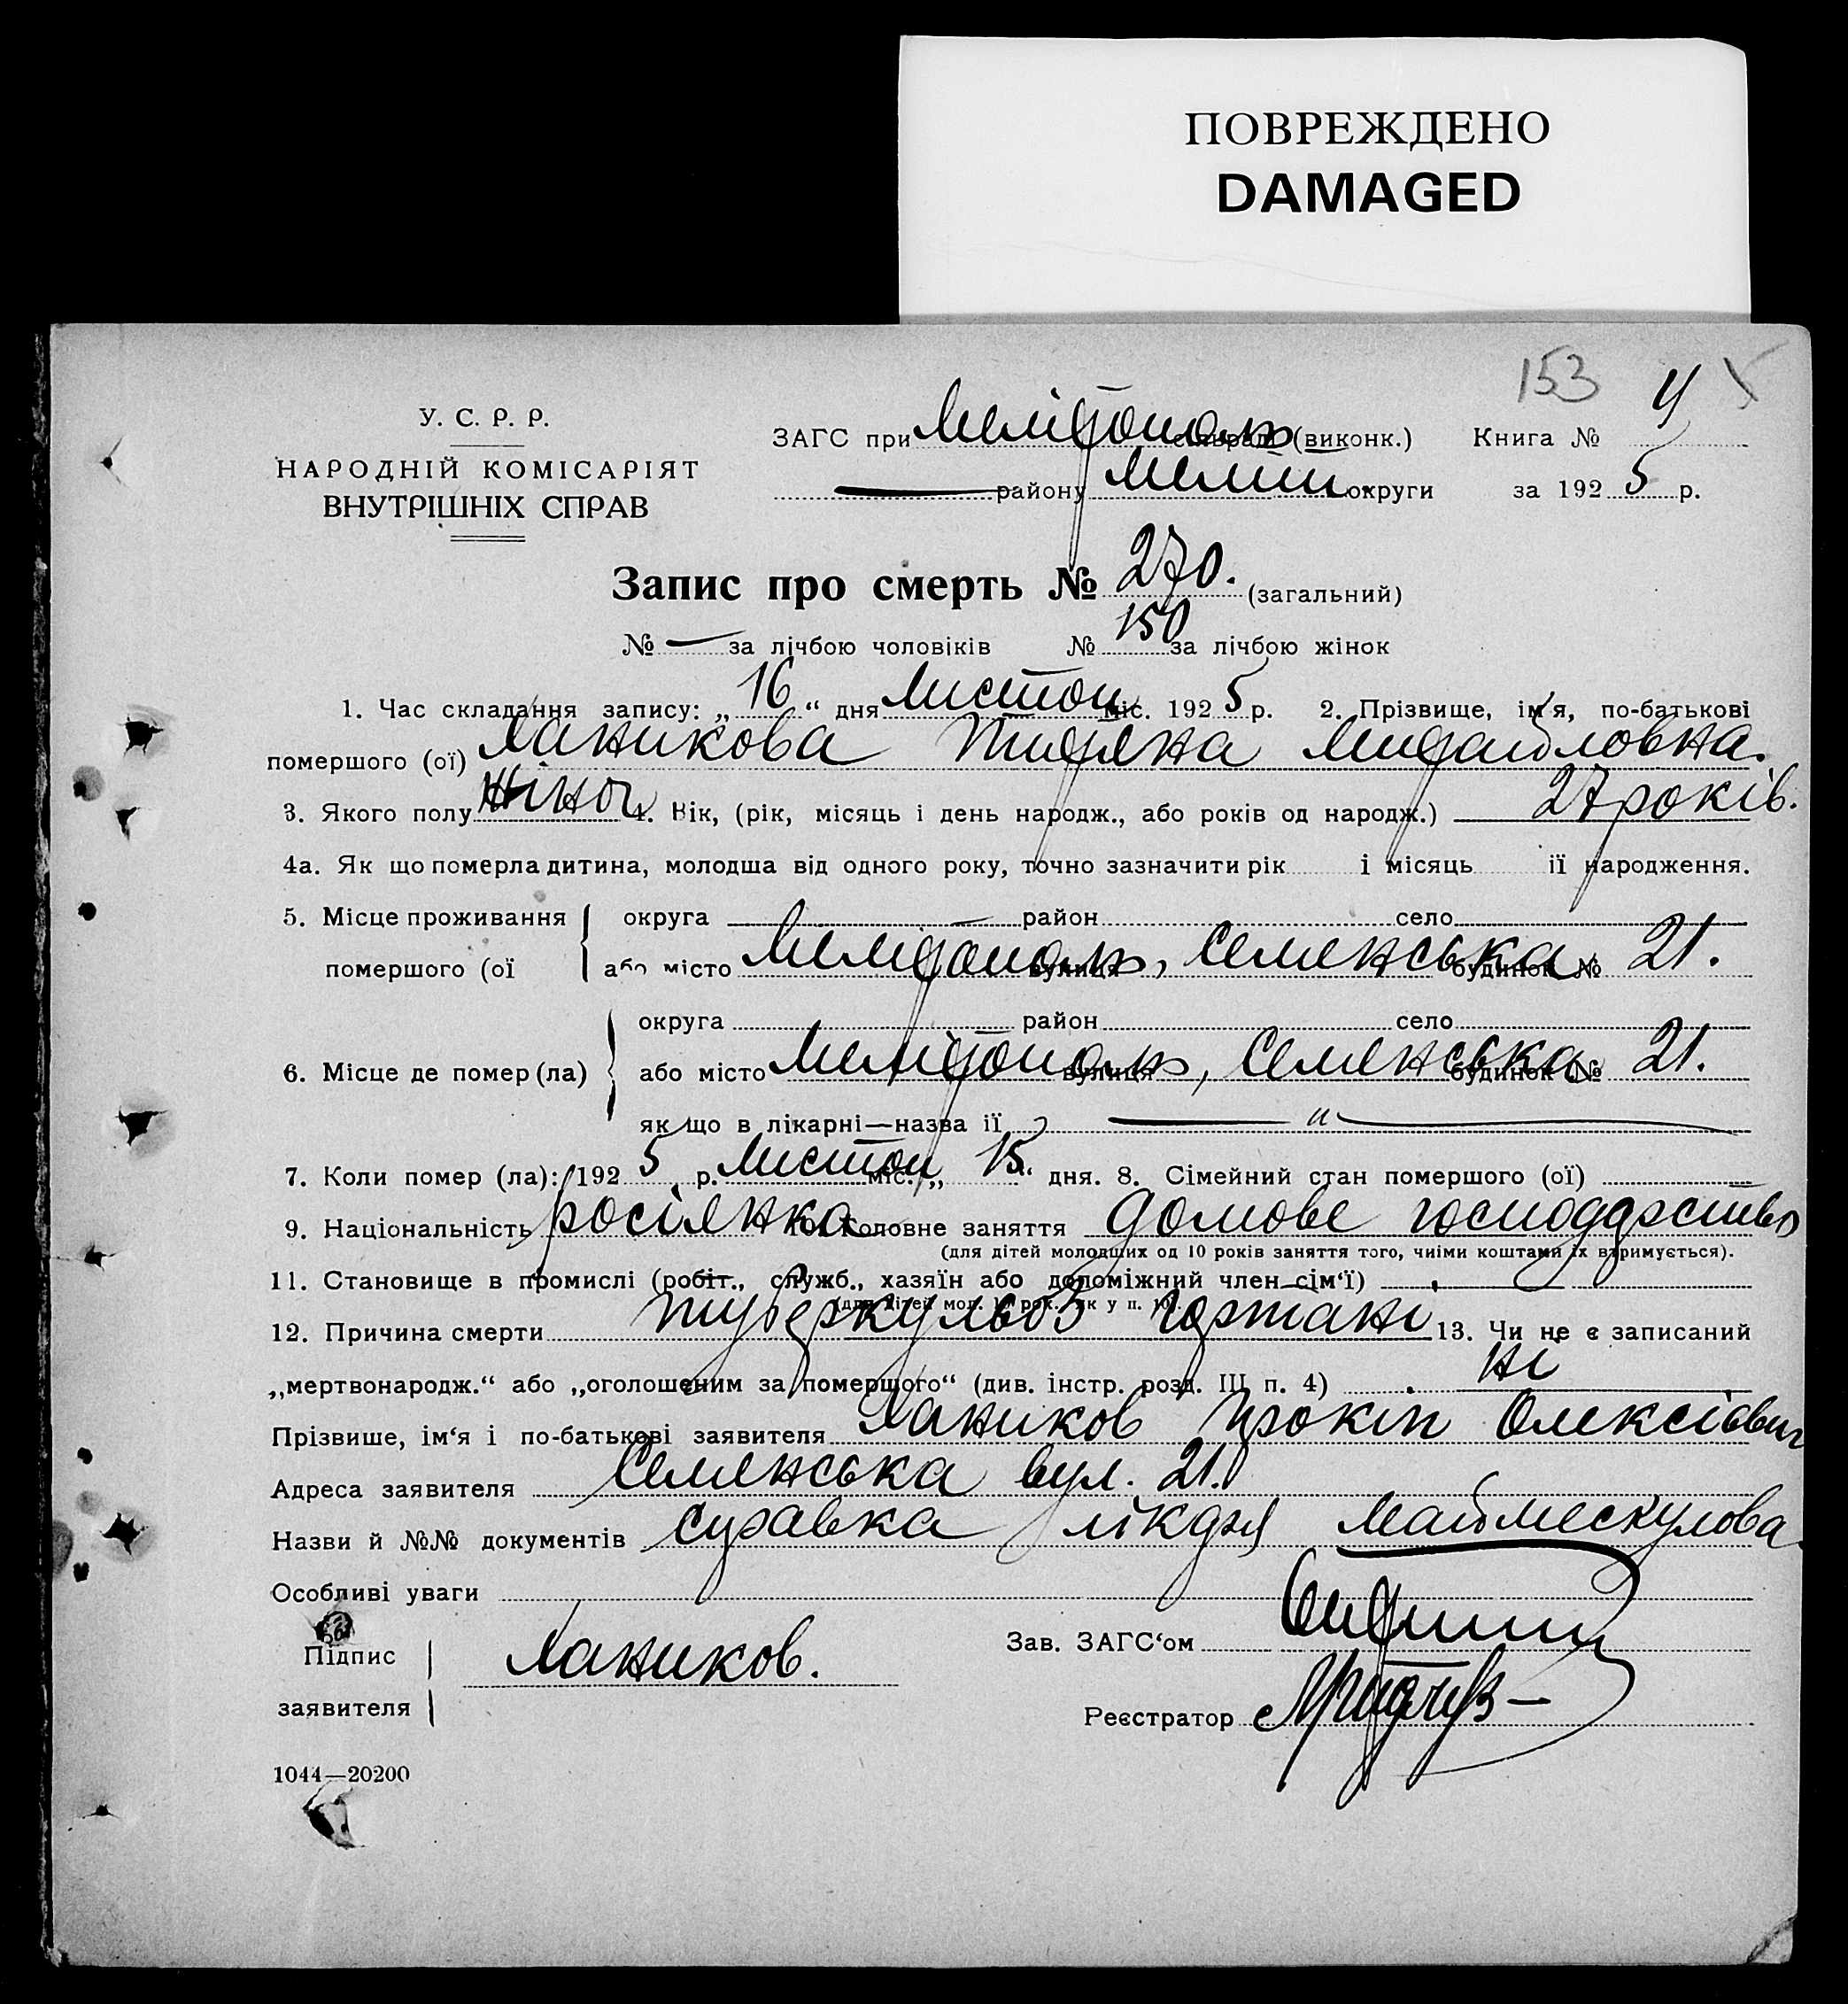 ПОВРЕЖДЕНО
DAMAGED
153 4
У. С. Р. Р.
НАРОДНІЙ КОМІСАРІЯТ
ВНУТРІШНІХ СПРАВ
ЗАГС при Мелітополь (виконк.) Книга №
— району Меліт округи за 1925 р.
Запис про смерть № 270. (загальний)
№ — за лічбою чоловіків № 150 за лічбою жінок
1. Час складання запису: „16“ дня листоп міс. 1925 р. 2. Прізвище, ім'я, по-батькові
помершого (ої) Ханикова Михайловна.
3. Якого полу жіноч 4. Вік, (рік, місяць і день народж., або років од народж.) 27 років.
4а. Як що померла дитина, молодша від одного року, точно зазначити рік і місяць її народження.
5. Місце проживання округа район село
помершого (ої або місто Мелітополь, вулиця Семенська будинок № 21.
округа район село
6. Місце де помер (ла) або місто Мелітополь, вулиця Семенська будинок № 21.
як що в лікарні—назва її — „ —
7. Коли помер (ла): 1925 р. листоп міс. „15“ дня. 8. Сімейний стан помершого (ої)
9. Національність росіянка 10. Головне заняття домове господарство
(для дітей молодших од 10 років заняття того, чиїми коштами їх втримується).
11. Становище в промислі (робіт., служб., хазяїн або допоміжний член сім'ї)
(для дітей мол. 10 рок. як у п. 10).
12. Причина смерти туберкульоз гортані 13. Чи не є записаний
„мертвонародж.“ або „оголошеним за помершого“ (див. інстр. розд. III п. 4) ні
Прізвише, ім'я і по-батькові заявителя Хаников Прокіп Олексієвич
Адреса заявителя Семенська вул. 21.
Назви й №№ документів справка лікаря
Особливі уваги
Підпис
заявителя Хаников.
Зав. ЗАГС'ом
Реєстратор
1044—20200